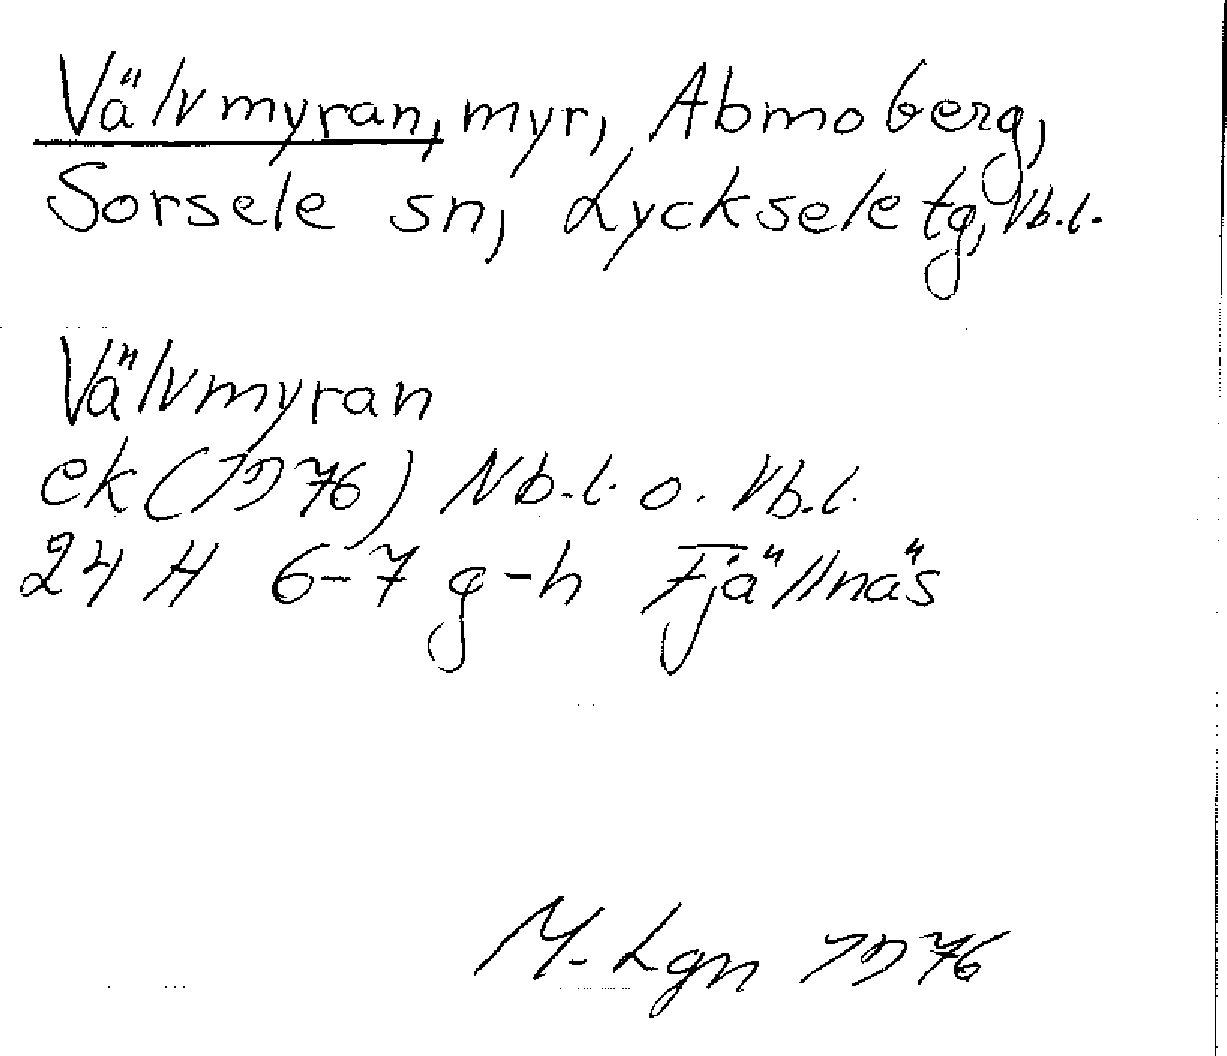 Välvmyran, myr, Abmoberg,
Sorsele sn, Lycksele tg, Vb.l.
Välvmyran
ek (1976) Nb.l. o. Vb.l.
24 H 6-7 g-h Fjällnäs
M. Lgn 1976